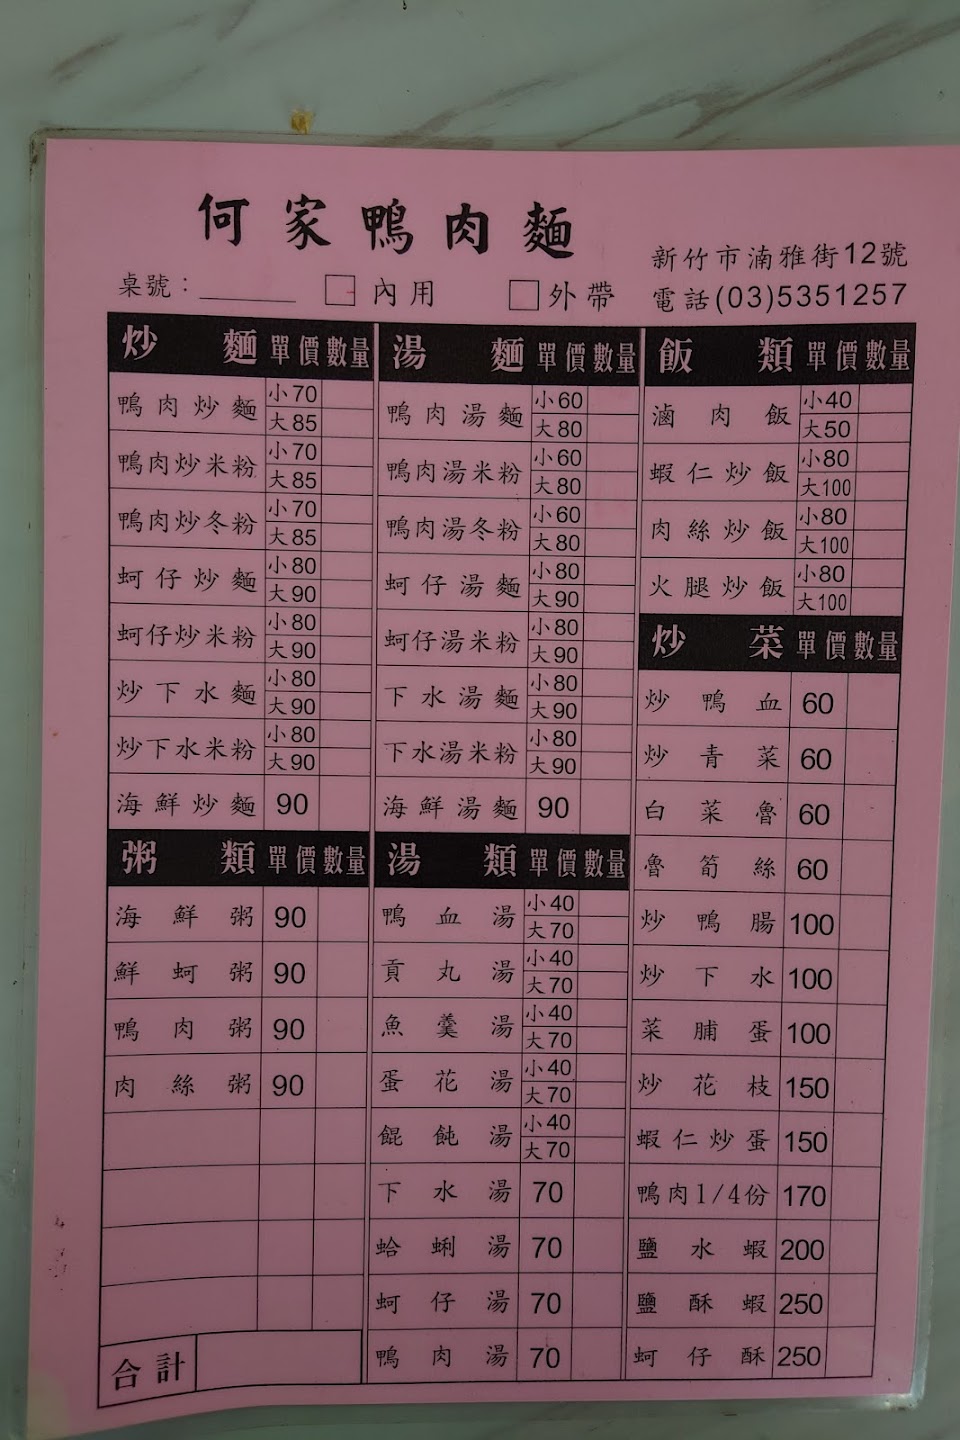 何家鴨肉麵
新竹市湳雅街12號
桌號：
內用
外帶
電話(03)5351257
炒麵 單價 數量
鴨肉炒麵 小70
大85
鴨肉炒米粉 小70
大85
鴨肉炒冬粉 小70
大85
蚵仔炒麵 小80
大90
蚵仔炒米粉 小80
大90
炒下水麵 小80
大90
炒下水米粉 小80
大90
海鮮炒麵 90
粥類 單價 數量
海鮮粥 90
鮮蚵粥 90
鴨肉粥 90
肉絲粥 90
合計
湯麵 單價 數量
鴨肉湯麵 小60
大80
鴨肉湯米粉 小60
大80
鴨肉湯冬粉 小60
大80
蚵仔湯麵 小80
大90
蚵仔湯米粉 小80
大90
下水湯麵 小80
大90
下水湯米粉 小80
大90
海鮮湯麵 90
湯類 單價 數量
鴨血湯 小40
大70
貢丸湯 小40
大70
魚羹湯 小40
大70
蛋花湯 小40
大70
餛飩湯 小40
大70
下水湯 70
蛤蜊湯 70
蚵仔湯 70
鴨肉湯 70
飯類 單價 數量
滷肉飯 小40
大50
蝦仁炒飯 小80
大100
肉絲炒飯 小80
大100
火腿炒飯 小80
大100
炒菜 單價 數量
炒鴨血 60
炒青菜 60
白菜魯 60
魯筍絲 60
炒鴨腸 100
炒下水 100
菜脯蛋 100
炒花枝 150
蝦仁炒蛋 150
鴨肉1/4份 170
鹽水蝦 200
鹽酥蝦 250
蚵仔酥 250